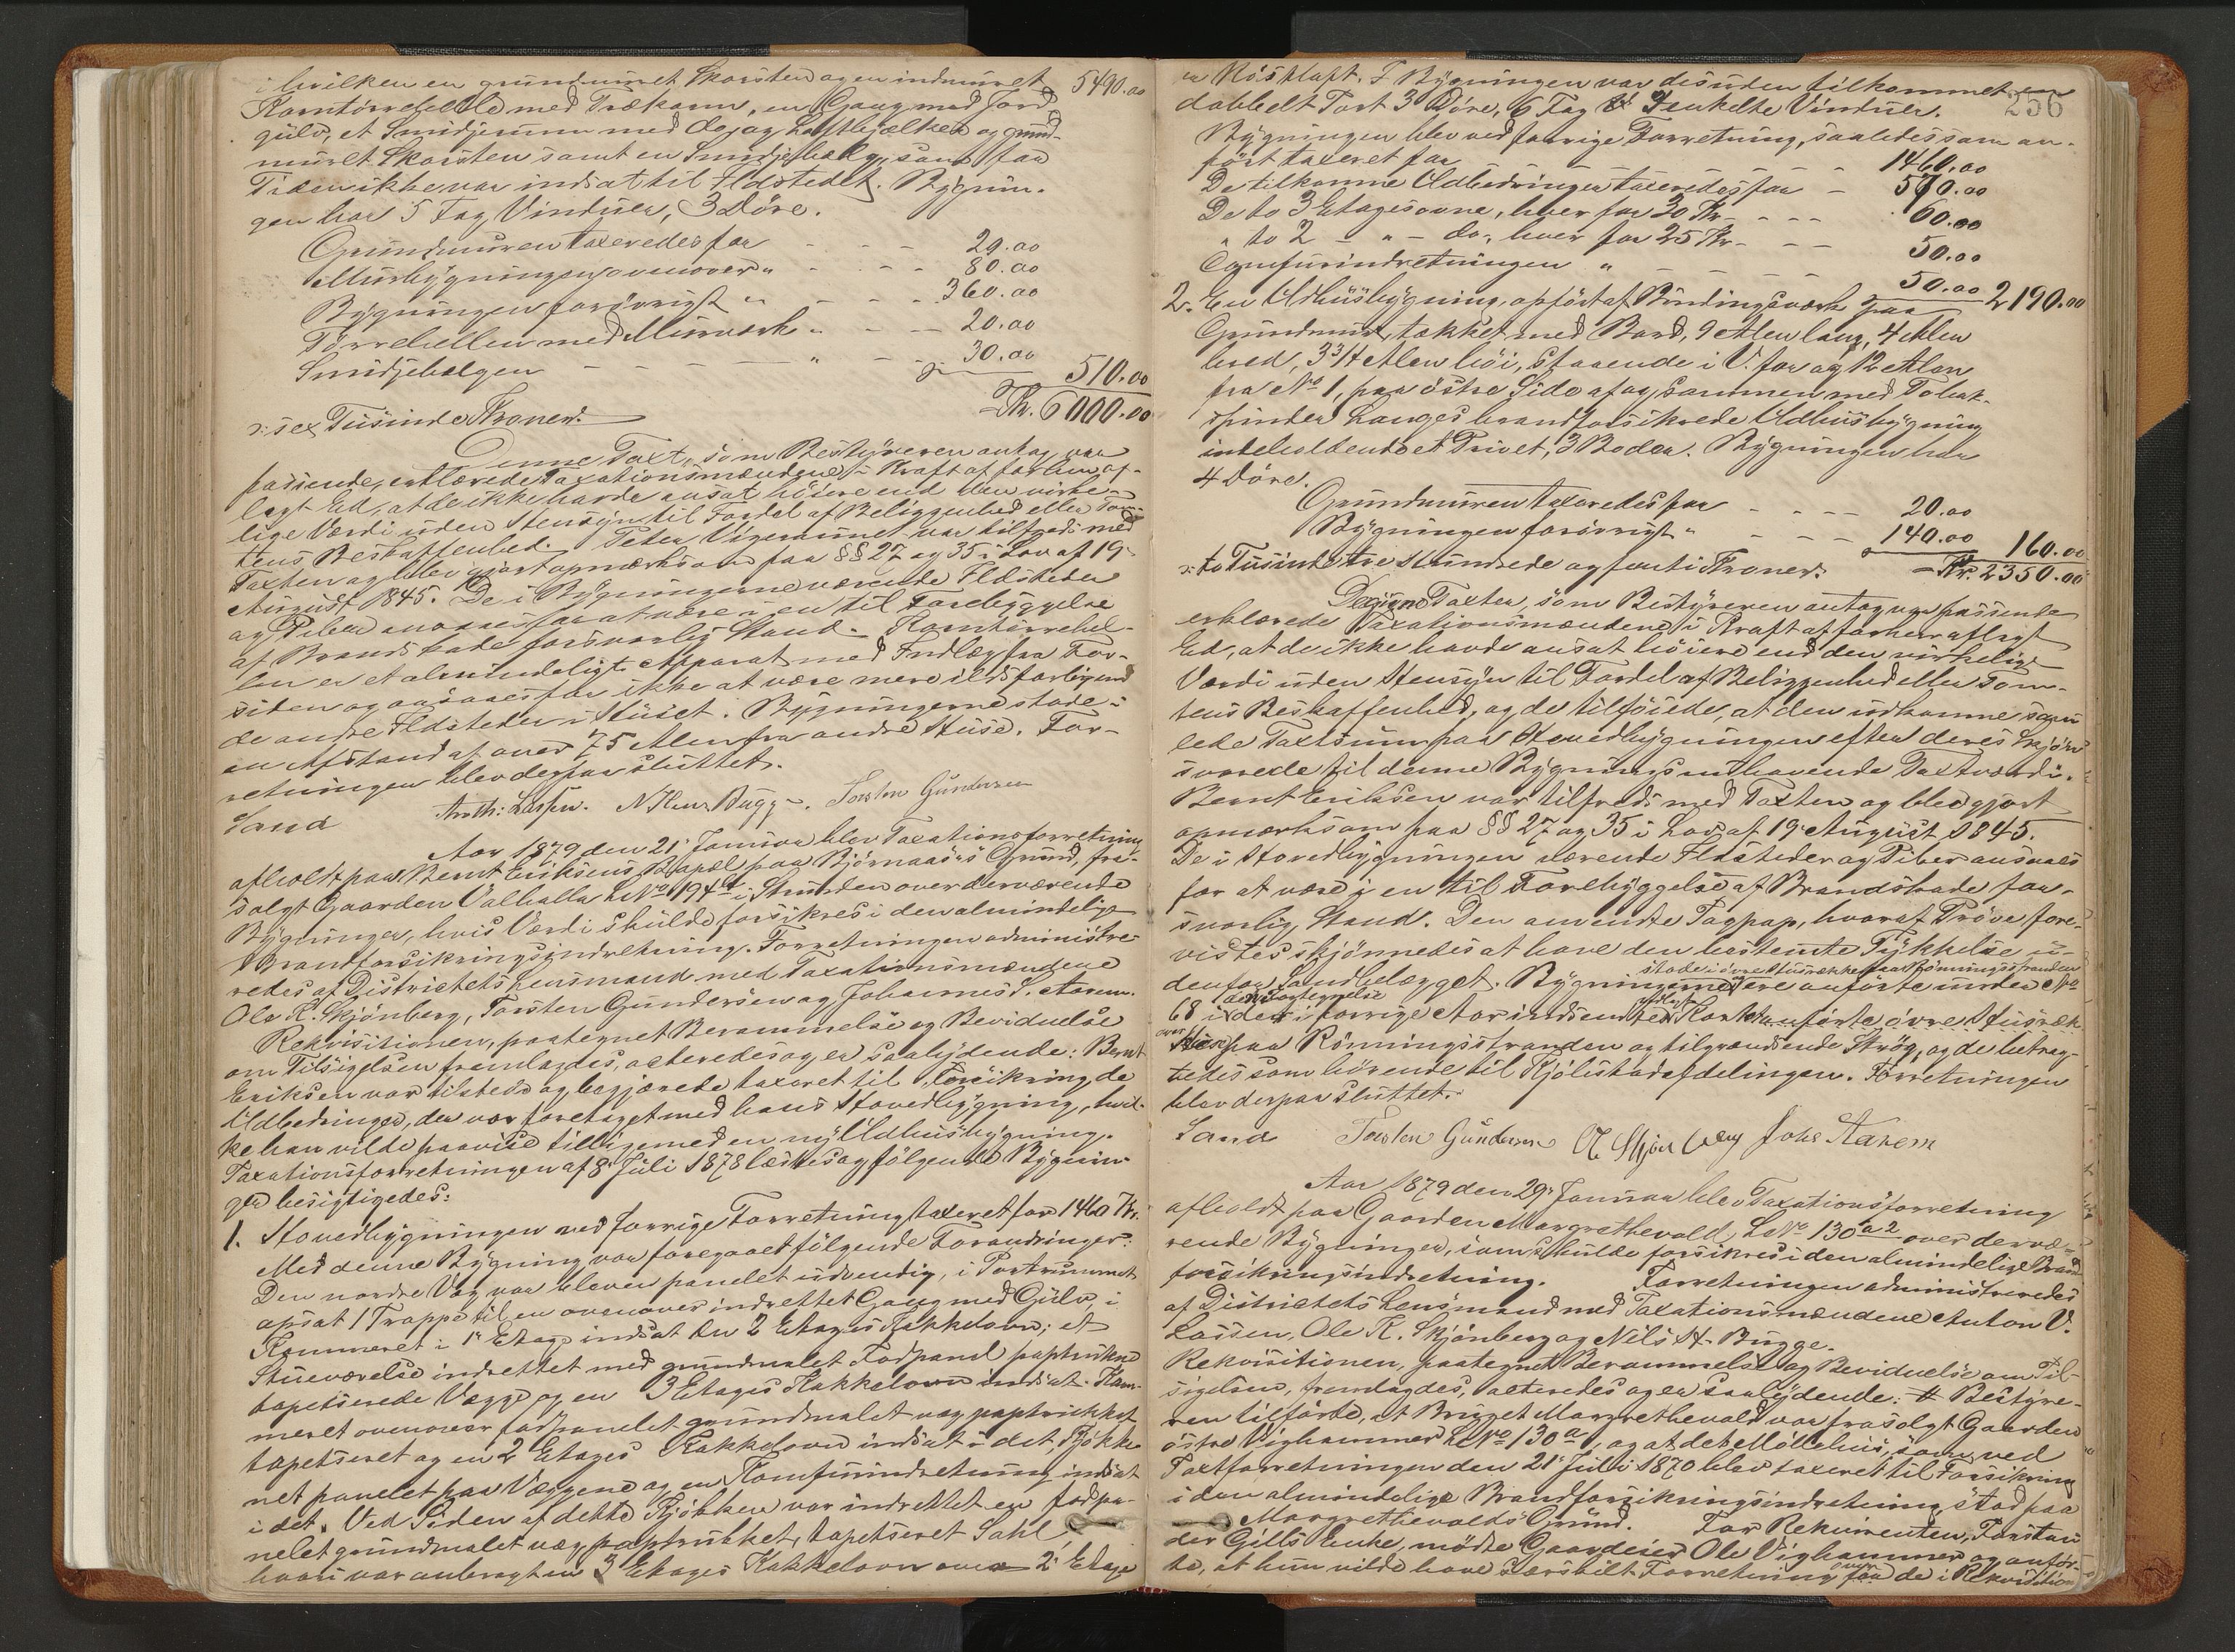 i hvilken en grundmuret Skorsten og en indmuret 5490.00
Korntörrehelle med Trækarm, en Gang med Jord-
gulv, et Smidjerum med do, og Loftbjælker og grund-
muret Skorsten samt en Smidjebælg, som paa
Tiden ikke var indsat til Ildstedet. Bygnin-
gen har 5 Fag Vinduer, 3 Döre.
Grundmuren taxeredes for - - - 20.00
Murbygningen ovenover " - - - 80.00
Bygningen forövrigt " - - - 360.00
Törrehellen med Murværk " - - - 20.00
Smidjebælgen - - - " - - 30.00
510.00
ɔ: sex Tusinde Kroner. = Kr. 6000.00
Denne Taxt, som Bestyreren antog var
passende, erklærede Taxationsmændene i Kraft af forhen af-
lagt Ed, at de ikke havde ansat höiere end den virke-
lige Værdi uden Hensyn til Fordel af Beliggenhed eller Tom-
tens Beskaffenhed. Peter Vigemund var tilfreds med
Taxten og blev gjort opmærksom paa §§ 27 og 35 i Lov af 19.
August 1845. De i Bygningerne værende Ildsteder
og Piber ansaaes for at være i en til Forebyggelse
af Brandskade forsvarlig Stand. Korntörrehel-
len er et almindeligt Apparat med Indlæg fra For-
siden og ansaaes for ikke at være mere ildsfarlig end
de andre Ildsteder i Huset. Bygningerne stode i
en Afstand af over 75 Alen fra andre Huse. For-
retningen blev derpaa sluttet.
Sand Anth: Lassen. N. Hens Bugge. Torsten Gundersen
Aar 1879 den 21. Januar blev Taxationsforretning
afholdt paa Bernt Eriksens Bopæl paa Björnaas's Grund, fra-
solgt Gaarden Valhalla LNo 194 b i Strinden over derværende
Bygninger, hvis Værdi skulde forsikres i den almindelige
Brandforsikringsindretning. Forretningen administre-
redes af Districtets Lensmand med Taxationsmændene
Ole K. Skjönberg, Torsten Gundersen og Johannes J. Aarem.
Rekvisitionen, paategnet Berammelse og Beviduelse
om Tilsigelsen fremlagdes, acteredes og er saalydende: Bernt
Eriksen var tilstede og begjærede taxeret til Forsikring, de
Udbedringer, der var foretaget med hans Hovedbygning, hvil-
ke han vilde paavise tilligemed en ny Udhusbygning.
Taxationsforretningen af 8. Juli 1878 læstes og fölgende Bygnin-
ger besigtigedes:
1. Hovedbygningen ved forrige Forretning taxeret for 1460 Kr.
Med denne Bygning var foregaaet fölgende Forandringer:
Den nordre Væg var bleven panelet udvendig, i Portrummet
opsat 1 Trappe til en ovenover indrettet Gang med Gulv, i
Kammeret i 1. Etage indsat en 2 Etages Kakkelovn; et
Stueværelse indrettet med grundmalet Fodpanel paptrukne
tapetserede Vægge og en 3 Etages Kakkelovn indsat. Kam-
meret ovenover fodpanelet grundmalet væg paptrukket
tapetseret og en 2 Etages Kakkelovn indsat i det, Kjökke-
net panelet paa Væggene og en Komfurindretning indsat
i det. Ved Siden af dette Kjökken var indrettet en fodpa-
nelet grundmalet væg paptrukket, tapetseret Sahl,
hvori var anbragt en 3 Etages Kakkelovn over 2. Etage
256
er Röstloft. I Bygningen var desuden tilkommet en
dobbelt Port 3 Döre, 6 Fag enkelte Vinduer.
Bygningen blev ved forrige Forretning, saaledes som an-
fört taxeret for - - - 1460.00
De tilkomne Udbedringer taxeredes for - 570.00
De to 3 Etagesovne, hver for 30 Kr - - - 60.00
" to 2 - " - do, hver for 25 Kr - - - 50.00
Comfurindretningen " - - - 50.00 2190.00
2. En Udhusbygning, opfört af Bindingsværk paa
Grundmur, takket med Bord, 9 Alen lang, 4 Alen
bred, 3 3/4 Alen höi, staaende i V. for og 12 Alen
fra No 1, paa östre Side af og sammen med Tobak-
spinder Langes brandforsikrede Udhusbygning
indeholdende et Privet, 3 Boder. Bygningen har
4 Döre.
Grundmuren taxeredes for - - - 20.00
Bygningen forövrigt " - - - 140.00 160.00
ɔ: to Tusinde tre Hundrede og femti Kroner. = Kr. 2350.00
Denne Taxter, som Bestyreren antog var passende
erklærede Taxationsmændene i Kraft af forhen aflagt
Ed, at de ikke havde ansat höiere end den virkelige
Værdi uden Hensyn til Fordel af Beliggenhed eller Tom-
tens Beskaffenhed, og de tilföiede, at den udkomne sam-
lede Taxtsum paa Hovedbygningen efter deres Skjön
svarede til denne Bygnings nuhavende Taxtværdi.
Bernt Eriksen var tilfreds med Taxten og blev gjort
opmærksom paa §§ 27 og 35 i Lov af 19. August 1845.
De i Hovedbygningen værende Ildsteder og Piber ansaaes
for at være i en til Forebyggelse af Brandskade for-
svarlig Stand. Den anvendte Tagpap, hvoraf Pröve fore-
vistes skjönnedes at have den bestemte Tykkelse u-
stode i övre Husrække paa Rönningsstranden
denfor Sandbelægget. Bygningerne og ere anförte under No
68 i den i forrige Aar indsendte Kart anförte övre Husræk-
over Huse paa Rönningsstranden og tilgrændsende Strög, og de betrag-
tedes som hörende til Kjölistadafdelingen. Forretningen
blev derpaa sluttet.
Sand Torsten Gundersen O K Skjönberg Johs Aarem
Aar 1879 den 29. Januar blev Taxationsforretning
afholdt paa Gaarden Margrethevold, LNo 130 a 2 over dervæ-
rende Bygninger, som skulde forsikres i den almindelige Brand-
forsikringsindretning. Forretningen administreredes
af Districtets Lensmand med Taxationsmændene Anton V.
Lassen, Ole K. Skjönberg og Nils H. Bugge.
Rekvisitionen, paategnet Berammelse og Beviduelse om Til-
sigelsen, fremlagdes, acteredes og er saalydende: # Bestyre-
ren tilförte, at Bruget Margrethevold var frasolgt Gaarden
östre Vighammer LNo 130 a, og at det Möllehus, som ved
Taxtforretningen den 21. Juli 1870 blev taxeret til Forsikring
i den almindelige Brandforsikringsindretning stod paa
Margrethevolds Grund. For Rekvirenten, Torstein-
der Gills Enke, mödte Gaardeier Ole Vighammer og anför-
te, at hun vilde have særskilt Forretning over de i Rekvisition